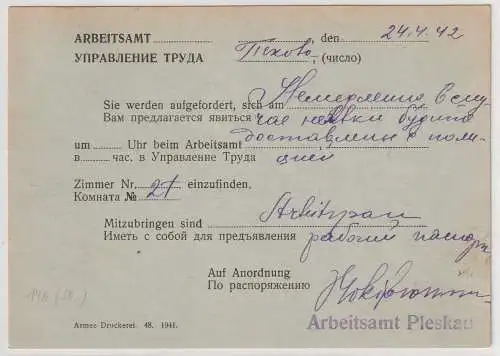 ARBEITSAMT , den 24.4.42
УПРАВЛЕНИЕ ТРУДА , (число)
Sie werden aufgefordert, sich am Немедленно В слу
Вам предлагается явиться чае неявки будите
um Uhr beim Arbeitsamt доставлены с поли
в час. в Управление Труда цией
Zimmer Nr. 21 einzufinden.
Комната №
Mitzubringen sind
Иметь с собой для предъявления рабочий паспорт
Auf Anordnung
По распоряжению
Armee Druckerei. 48. 1941.
Arbeitsamt Pleskau